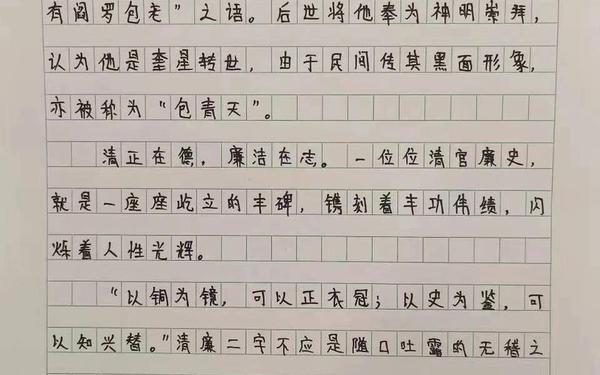 有阎罗包老”之语。后世将他奉为神明崇拜，
认为他是奎星转世，由于民间传其黑面形象，
亦被称为“包青天”。
清正在德，廉洁在志。一位位清官廉史，
就是一座座屹立的丰碑，镌刻着丰功伟绩，闪
烁着人性光辉。
“以铜为镜，可以正衣冠；以史为鉴，可
以知兴替。”清廉二字不应是随口吐露的无稽之